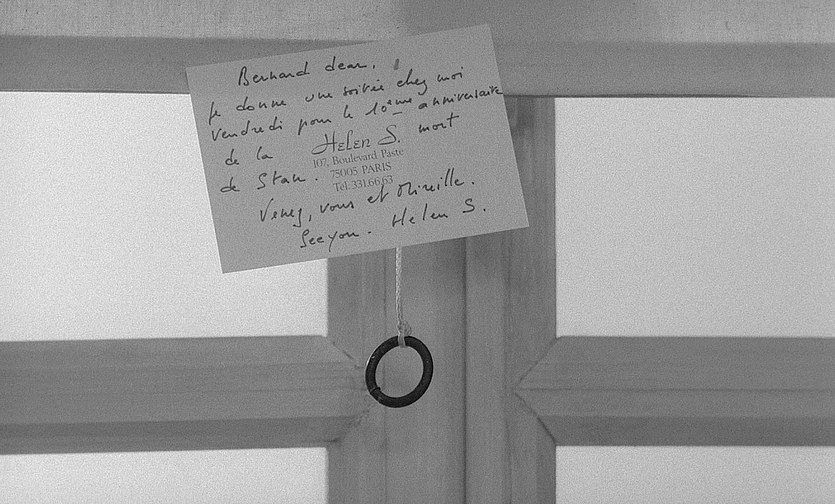 Bernard dear,
je donne une soirée chez moi
vendredi pour le 10ème anniversaire
de la Helen S. mort
107, Boulevard Paste
75005 PARIS
de Stan. Tel.331.66.63
Venez, vous et Mireille.
See you. Helen S.